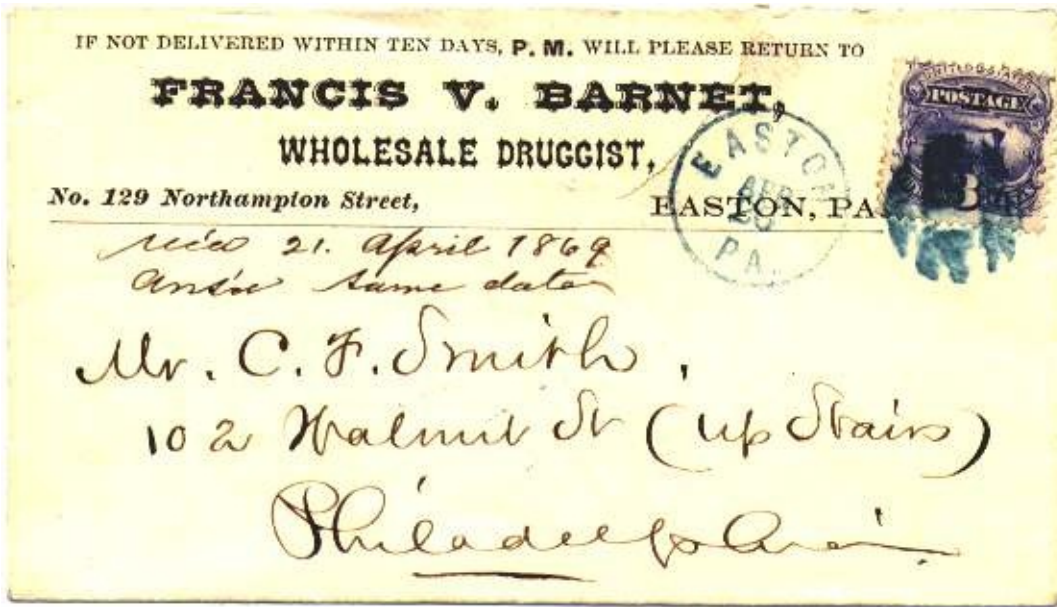 IF NOT DELIVERED WITHIN TEN DAYS, P. M. WILL PLEASE RETURN TO
FRANCIS V. BARNET,
WHOLESALE DRUGGIST,
No. 129 Northampton Street, EASTON, PA
UNITED STATES
POSTAGE
3
EASTON
APR
20
PA.
21. April 1869
same date
Mr. C. F. Smith,
102 Walnut St (up Stairs)
Philadelphia